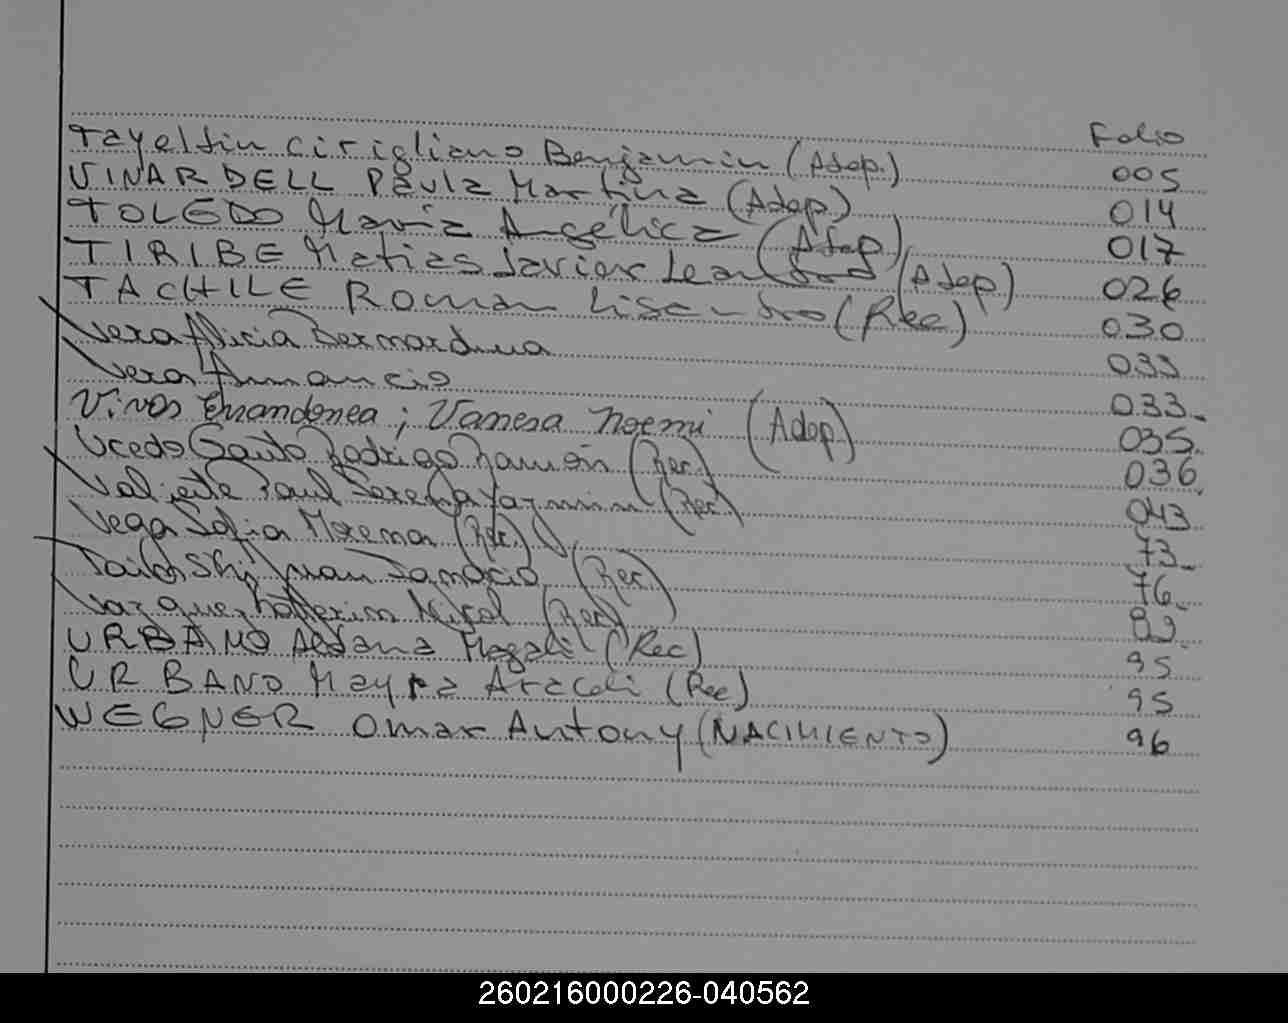 Folio
Tayeldin Cirigliano Benjamin (Adop.) 005
VINARDELL Paula Martina (Adop) 014
TOLEDO María Angélica (Adop) 017
TIRIBE Matias Javier Leandro (Adop) 026
TACHILE Roman Lisandro (Rec) 030
Vera Alicia Bernardina 033
Vera Amancio 033
Vivas Errandonea; Vanesa Noemi (Adop) 035
Ucedo Gauto Rodrigo Ramón (Rec) 036
Valiente Paul Serena Yazmin (Rec) 043
Vega Sofia Morena (Rec.) 73
Juan Ignacio (Rec) 76
Vazquez Katterina Nicol (Rec)
URBANO Aldana Magali (Rec) 95
URBANO Mayra Araceli (Rec) 95
WEGNER Omar Antony (NACIMIENTO) 96
260216000226-040562